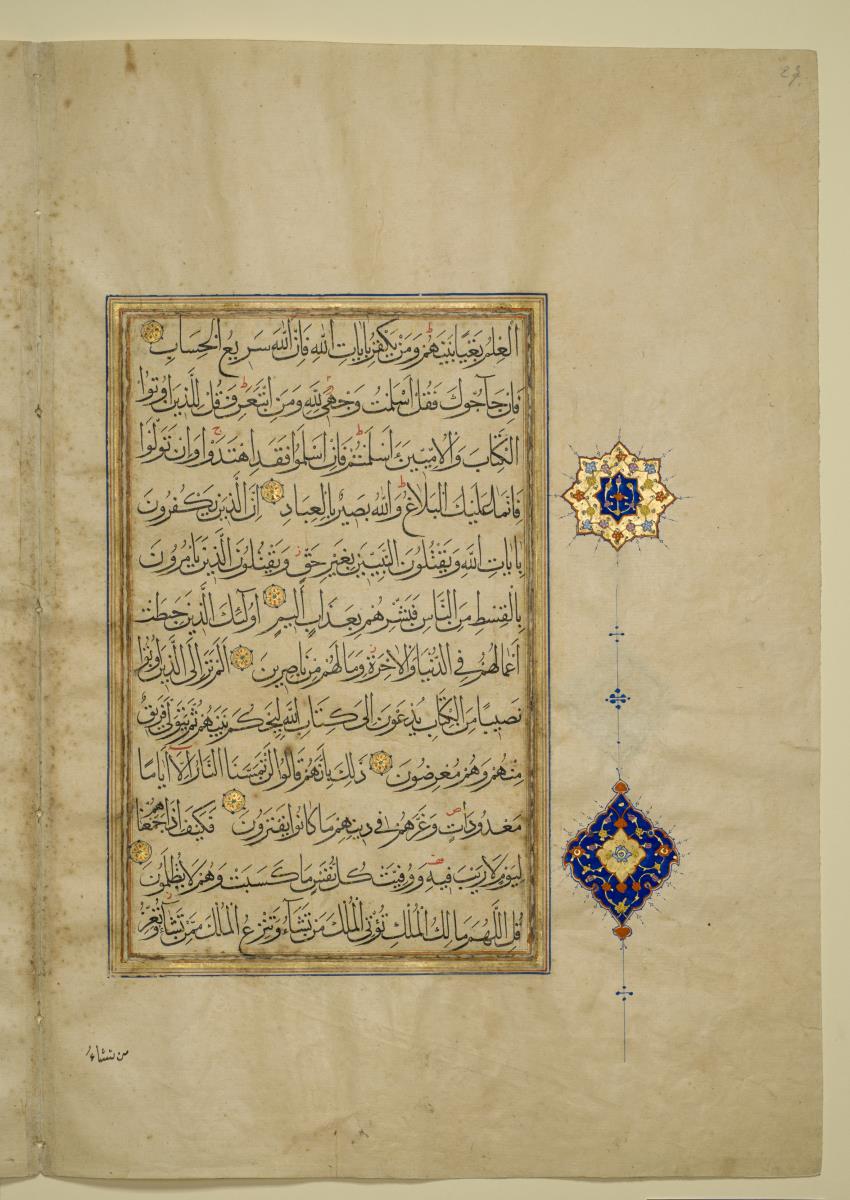 الْعِلْمُ بَغْيًا بَيْنَهُمْ وَمَنْ يَكْفُرْ بِاٰيَاتِ اللّٰهِ فَاِنَّ اللّٰهَ سَرِيعُ الْحِسَابِ
فَاِنْ حَآجُّوكَ فَقُلْ اَسْلَمْتُ وَجْهِيَ لِلّٰهِ وَمَنِ اتَّبَعَنِ وَقُلْ لِلَّذِينَ اُوتُوا
الْكِتَابَ وَالْاُمِّيِّينَ ءَاَسْلَمْتُمْ فَاِنْ اَسْلَمُوا فَقَدِ اهْتَدَوْا وَاِنْ تَوَلَّوْا
فَاِنَّمَا عَلَيْكَ الْبَلَاغُ وَاللّٰهُ بَصِيرٌ بِالْعِبَادِ اِنَّ الَّذِينَ يَكْفُرُونَ
بِاٰيَاتِ اللّٰهِ وَيَقْتُلُونَ النَّبِيِّينَ بِغَيْرِ حَقٍّ وَيَقْتُلُونَ الَّذِينَ يَاْمُرُونَ
بِالْقِسْطِ مِنَ النَّاسِ فَبَشِّرْهُمْ بِعَذَابٍ اَلِيمٍ اُولٰٓئِكَ الَّذِينَ حَبِطَتْ
اَعْمَالُهُمْ فِي الدُّنْيَا وَالْاٰخِرَةِ وَمَا لَهُمْ مِنْ نَاصِرِينَ اَلَمْ تَرَ اِلَى الَّذِينَ اُوتُوا
نَصِيبًا مِنَ الْكِتَابِ يُدْعَوْنَ اِلٰى كِتَابِ اللّٰهِ لِيَحْكُمَ بَيْنَهُمْ ثُمَّ يَتَوَلّٰى فَرِيقٌ
مِنْهُمْ وَهُمْ مُعْرِضُونَ ذٰلِكَ بِاَنَّهُمْ قَالُوا لَنْ تَمَسَّنَا النَّارُ اِلَّآ اَيَّامًا
مَعْدُودَاتٍ وَغَرَّهُمْ فِي دِينِهِمْ مَا كَانُوا يَفْتَرُونَ فَكَيْفَ اِذَا جَمَعْنَاهُمْ
لِيَوْمٍ لَا رَيْبَ فِيهِ وَوُفِّيَتْ كُلُّ نَفْسٍ مَا كَسَبَتْ وَهُمْ لَا يُظْلَمُونَ
قُلِ اللّٰهُمَّ مَالِكَ الْمُلْكِ تُؤْتِي الْمُلْكَ مَنْ تَشَآءُ وَتَنْزِعُ الْمُلْكَ مِمَّنْ تَشَآءُ وَتُعِزُّ
من تشاء